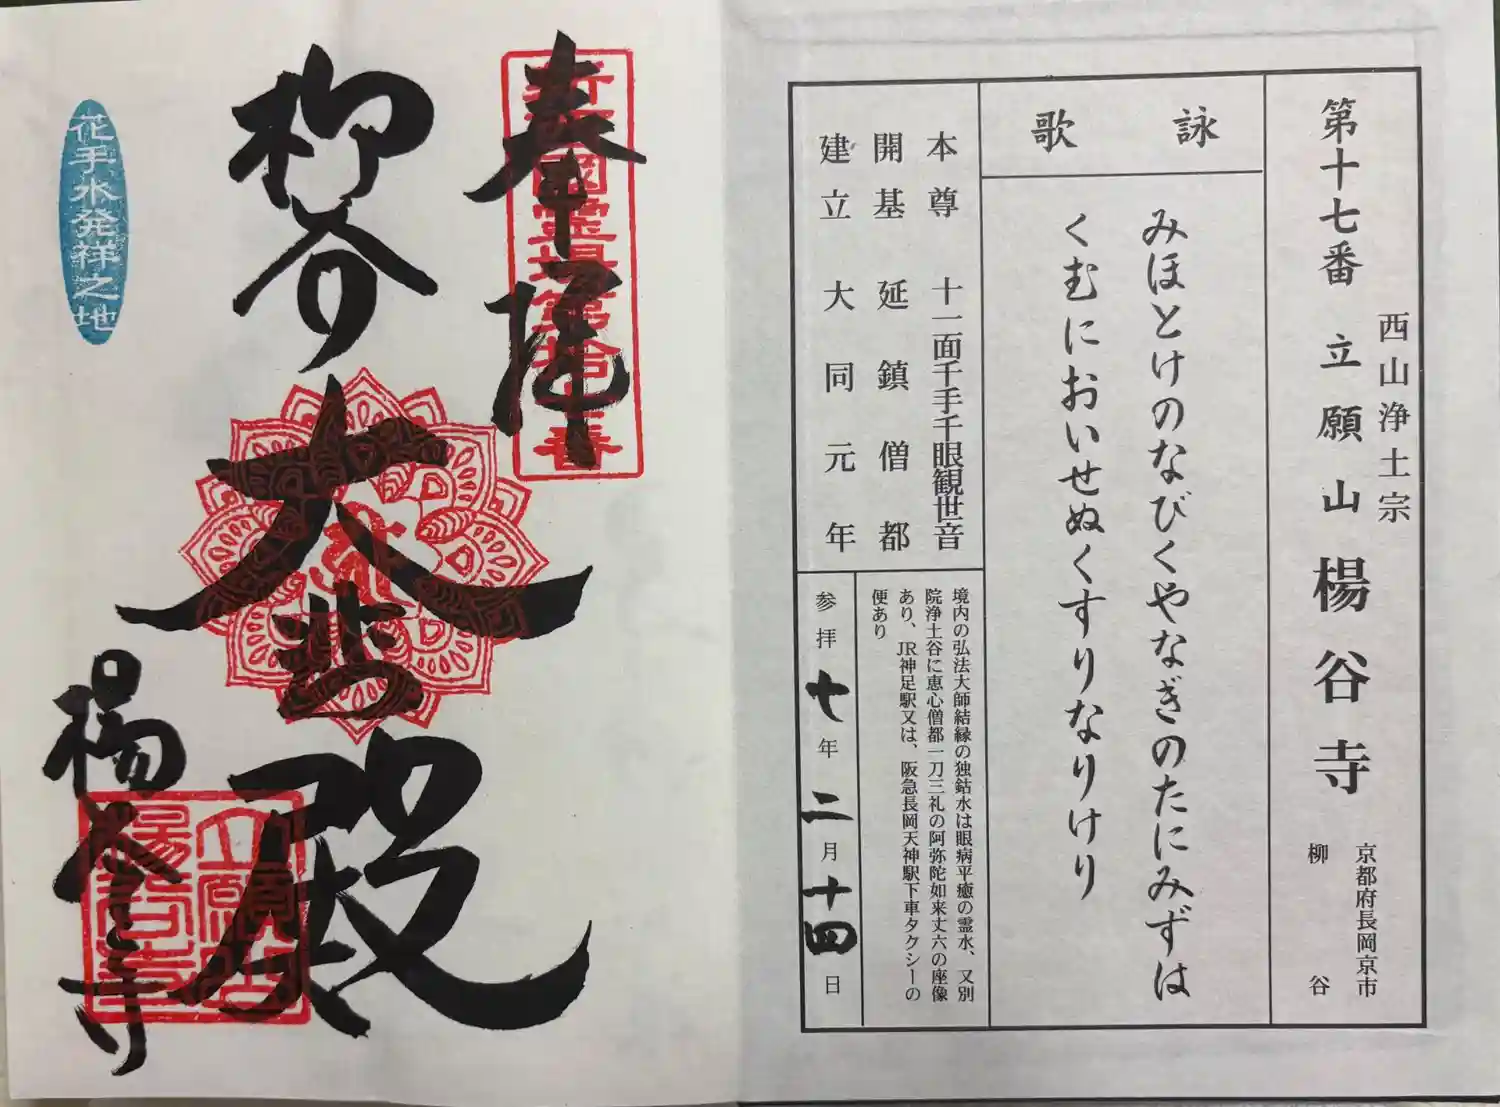 第十七番 立願山 楊谷寺
西山浄土宗
京都府長岡京市
柳谷
詠歌
みほとけのなびくやなぎのたにみずは
くむにおいせぬくすりなりけり
本尊 十一面千手千眼観世音
開基 延鎮僧都
建立 大同元年
境内の弘法大師結縁の独鈷水は眼病平癒の霊水、又別
院浄土谷に恵心僧都一刀三礼の阿弥陀如来丈六の座像
あり、JR神足駅又は、阪急長岡天神駅下車タクシーの
便あり
参拝 七年 二月 十四日
奉拝
新西國霊場第拾七番
柳谷
大悲殿
楊谷寺
立願山
楊谷寺
花手水発祥之地